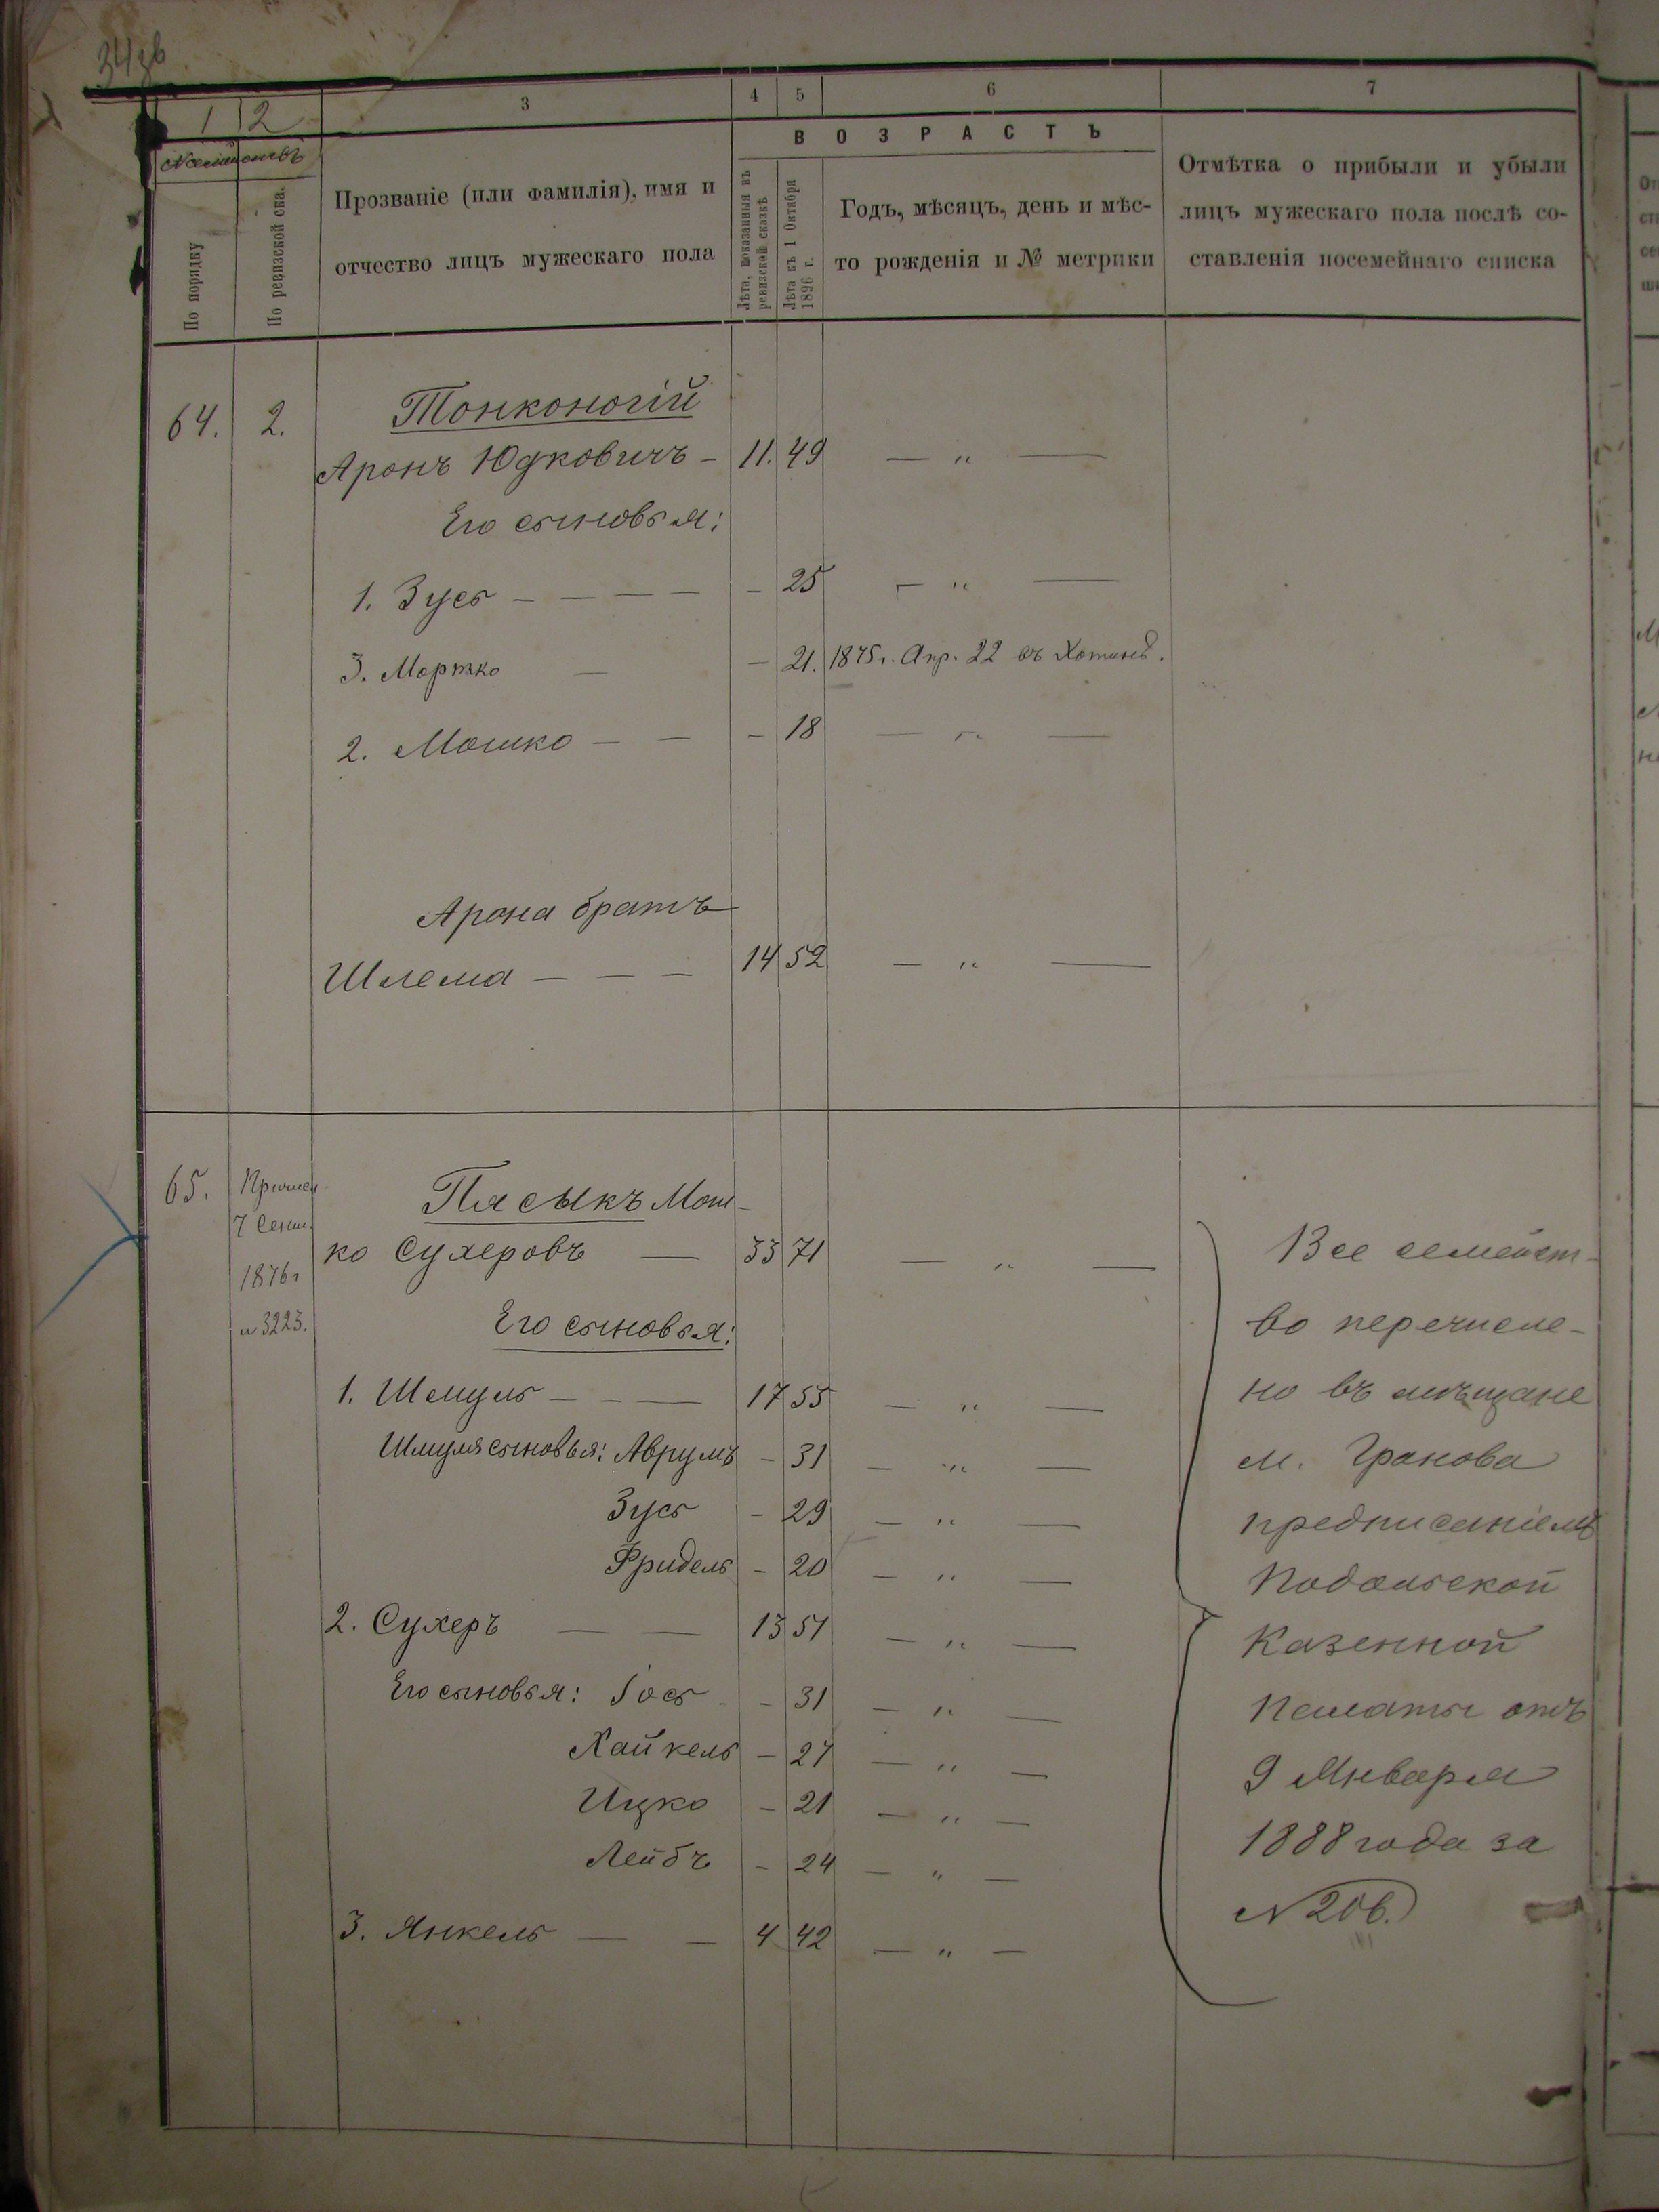 34 зв
1 2 3 4 5 6 7
№ семействъ
По порядку
По ревизской ска.
Прозваніе (или фамилія), имя и
отчество лицъ мужескаго пола
ВОЗРАСТЪ
Лѣта, показанныя въ
ревизской сказкѣ
Лѣта къ 1 Октября
1896 г.
Годъ, мѣсяцъ, день и мѣс-
то рожденія и № метрики
Отмѣтка о прибыли и убыли
лицъ мужескаго пола послѣ со-
ставленія посемейнаго списка
64. 2. Тонконогій
Аронъ Юдковичъ – 11. 49 — „ —
Его сыновья:
1. Зусь – — — — – 25 — „ —
3. Мортко — – 21. 1875 г. Апр. 22 въ Хотинѣ.
2. Мошко – — – 18 — „ —
Арона братъ
Шлема — — — 14 52 — „ —
65. Причисл.
7 Сент.
1876 г
№ 3223.
Пясыкъ Мош-
ко Сухеровъ — 33 71 — „ —
Его сыновья:
1. Шмуль — – — 17 55 — „ —
Шмуля сыновья: Аврумъ – 31 — „ —
Зусь – 29 — „ —
Фридель – 20 — „ —
2. Сухеръ — — 13 51 — „ —
Его сыновья: Іось – 31 — „ —
Хайкель – 27 — „ —
Ицко – 21 — „ —
Лейбъ – 24 — „ —
3. Янкель — — 4 42 — „ —
Все семейст-
во перечисле-
но въ мѣщане
м. Гранова
предписаніемъ
Подольской
Казенной
Палаты отъ
9 Января
1888 года за
№ 206.